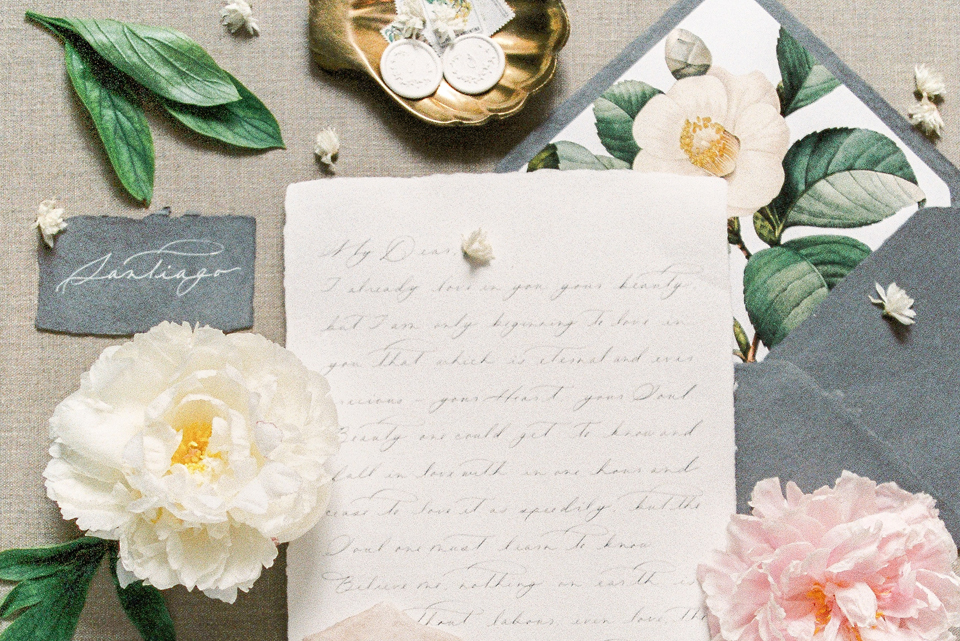 Santiago
My Dear,
I already love in you your beauty,
but I am only beginning to love in
you that which is eternal and ever
precious - your Heart, your Soul
Beauty one could get to know and
fall in love with in one hour and
cease to love it as speedily, but the
Soul one must learn to know
Believe me nothing on earth is
without labour, even love, the